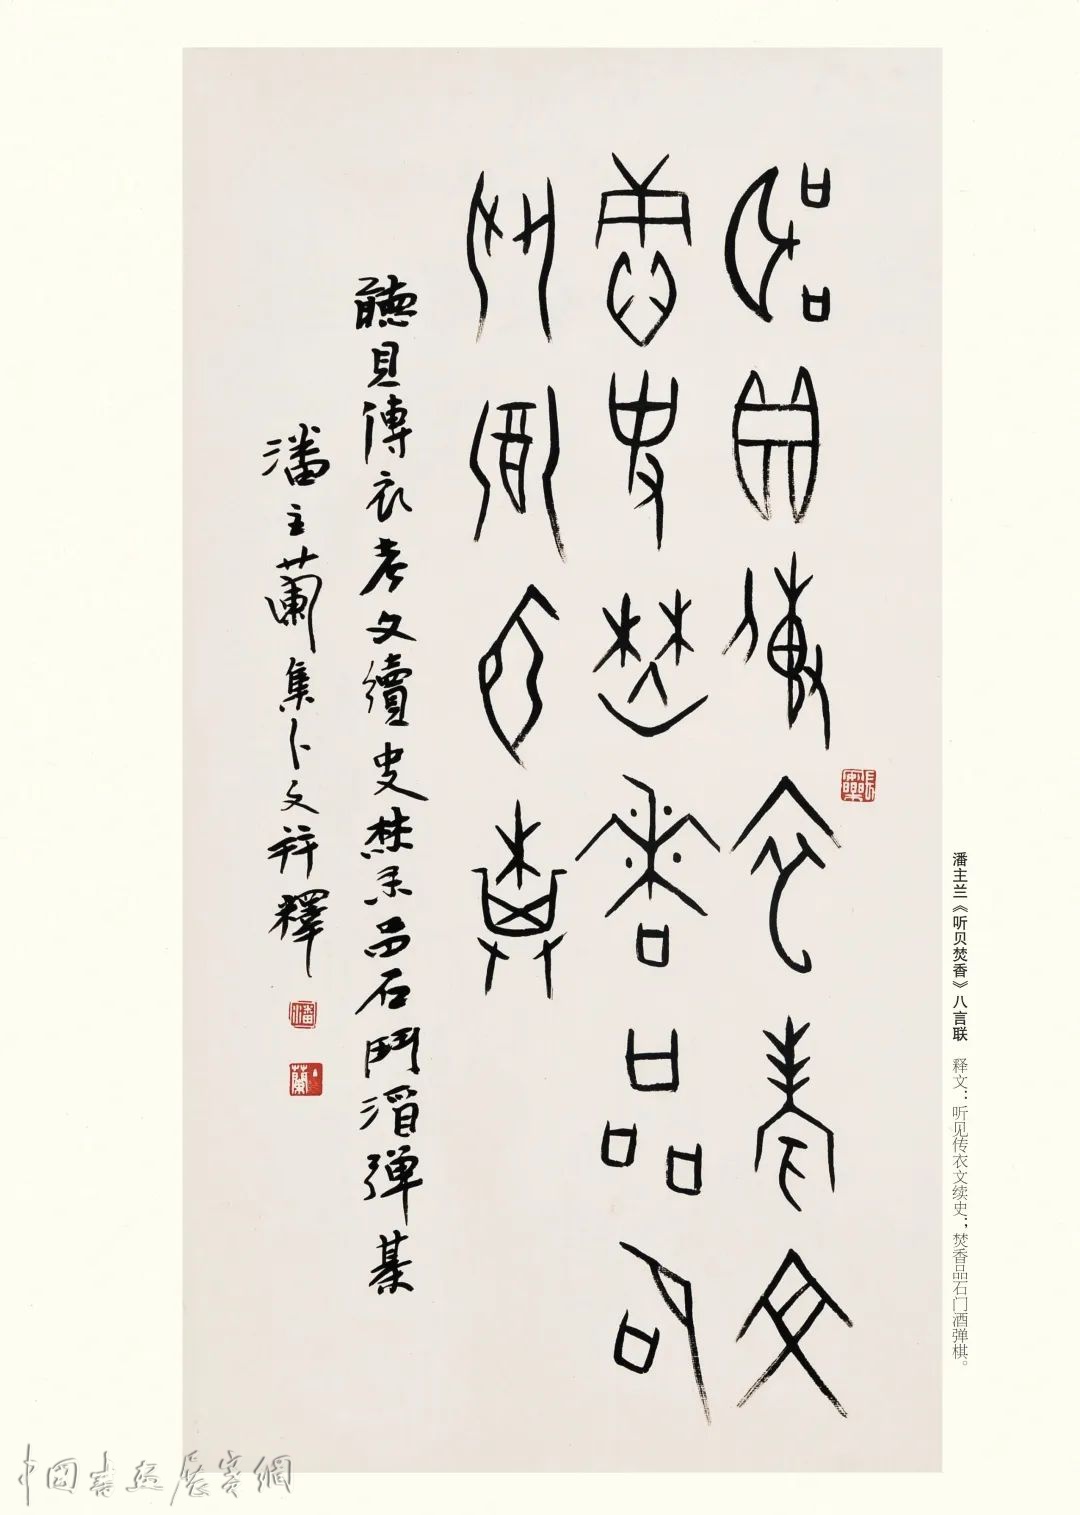 聽貝傳衣考文
續史焚香品石
鬥酒彈棊
聽貝傳衣考文續史焚香品石鬥酒彈棊
潘主蘭集卜文并釋
長樂
潘
蘭
潘主兰《听贝焚香》八言联 释文：听见传衣文续史；焚香品石门酒弹棋。
中國書画展賽網